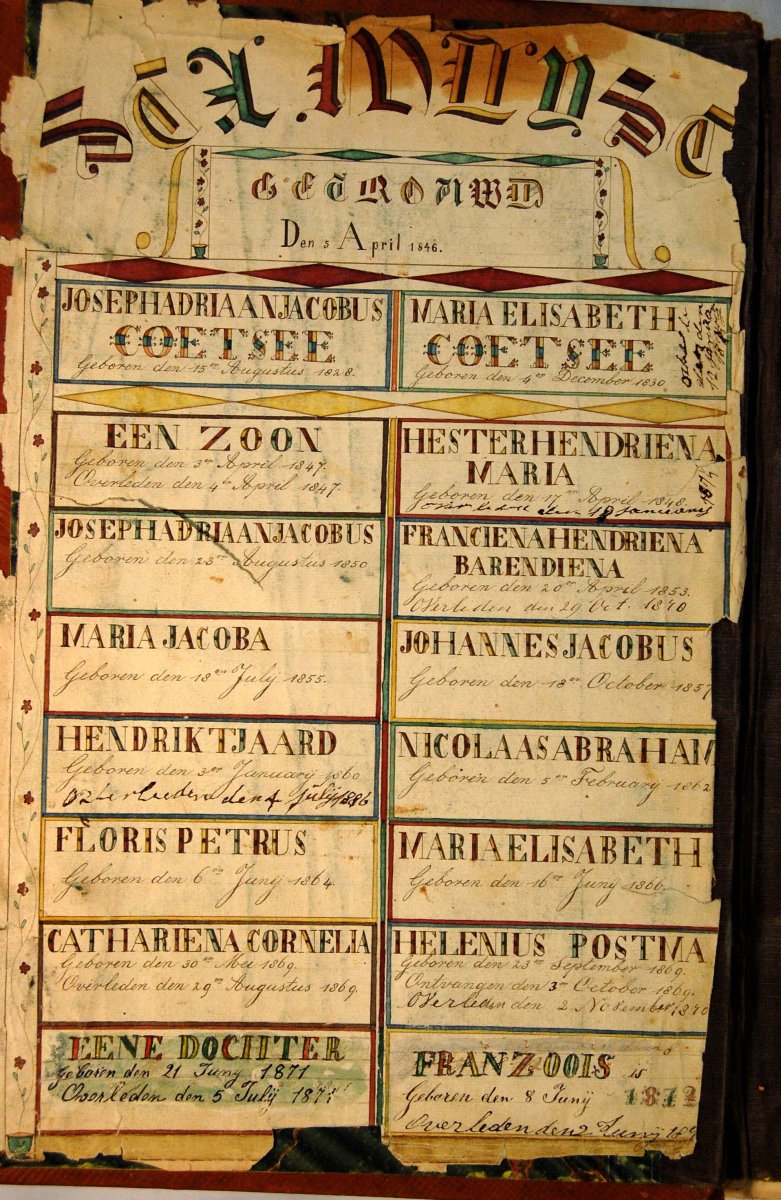 GETROUWD
Den 5 April 1846.
JOSEPH ADRIAAN JACOBUS
COETSEE
Geboren den 15en Augustus 1828.
MARIA ELISABETH
COETSEE
Geboren den 4en December 1830
EEN ZOON
Geboren den 3en April 1847.
Overleden den 4en April 1847.
HESTER HENDRIENA
MARIA
Geboren den 17en April 1848.
JOSEPH ADRIAAN JACOBUS
Geboren den 23en Augustus 1850
FRANCIENA HENDRIENA
BARENDIENA
Geboren den 20en April 1853.
OVerleden den 29 Oct. 1870
MARIA JACOBA
Geboren den 18en July 1855.
JOHANNES JACOBUS
Geboren den 18en October 1857
HENDRIK TJAARD
Geboren den 3en January 1860
den 4 July 1886
NICOLAAS ABRAHAM
Geboren den 5en February 1862
FLORIS PETRUS
Geboren den 6en Junij 1864.
MARIA ELISABETH
Geboren den 16en Juny 1866.
CATHARIENA CORNELIA
Geboren den 30en Mei 1869.
Overleden den 29en Augustus 1869.
HELENIUS POSTMA
Geboren den 23en September 1869.
Ontvangen den 3en October 1869.
OVerleden den 2 November 1870
EENE DOCHTER
Geboren den 21 Juny 1871
Overleden den 5 Julij
FRANZOOIS
Geboren den 8 Junij 1872
Overleden den 2 Junij